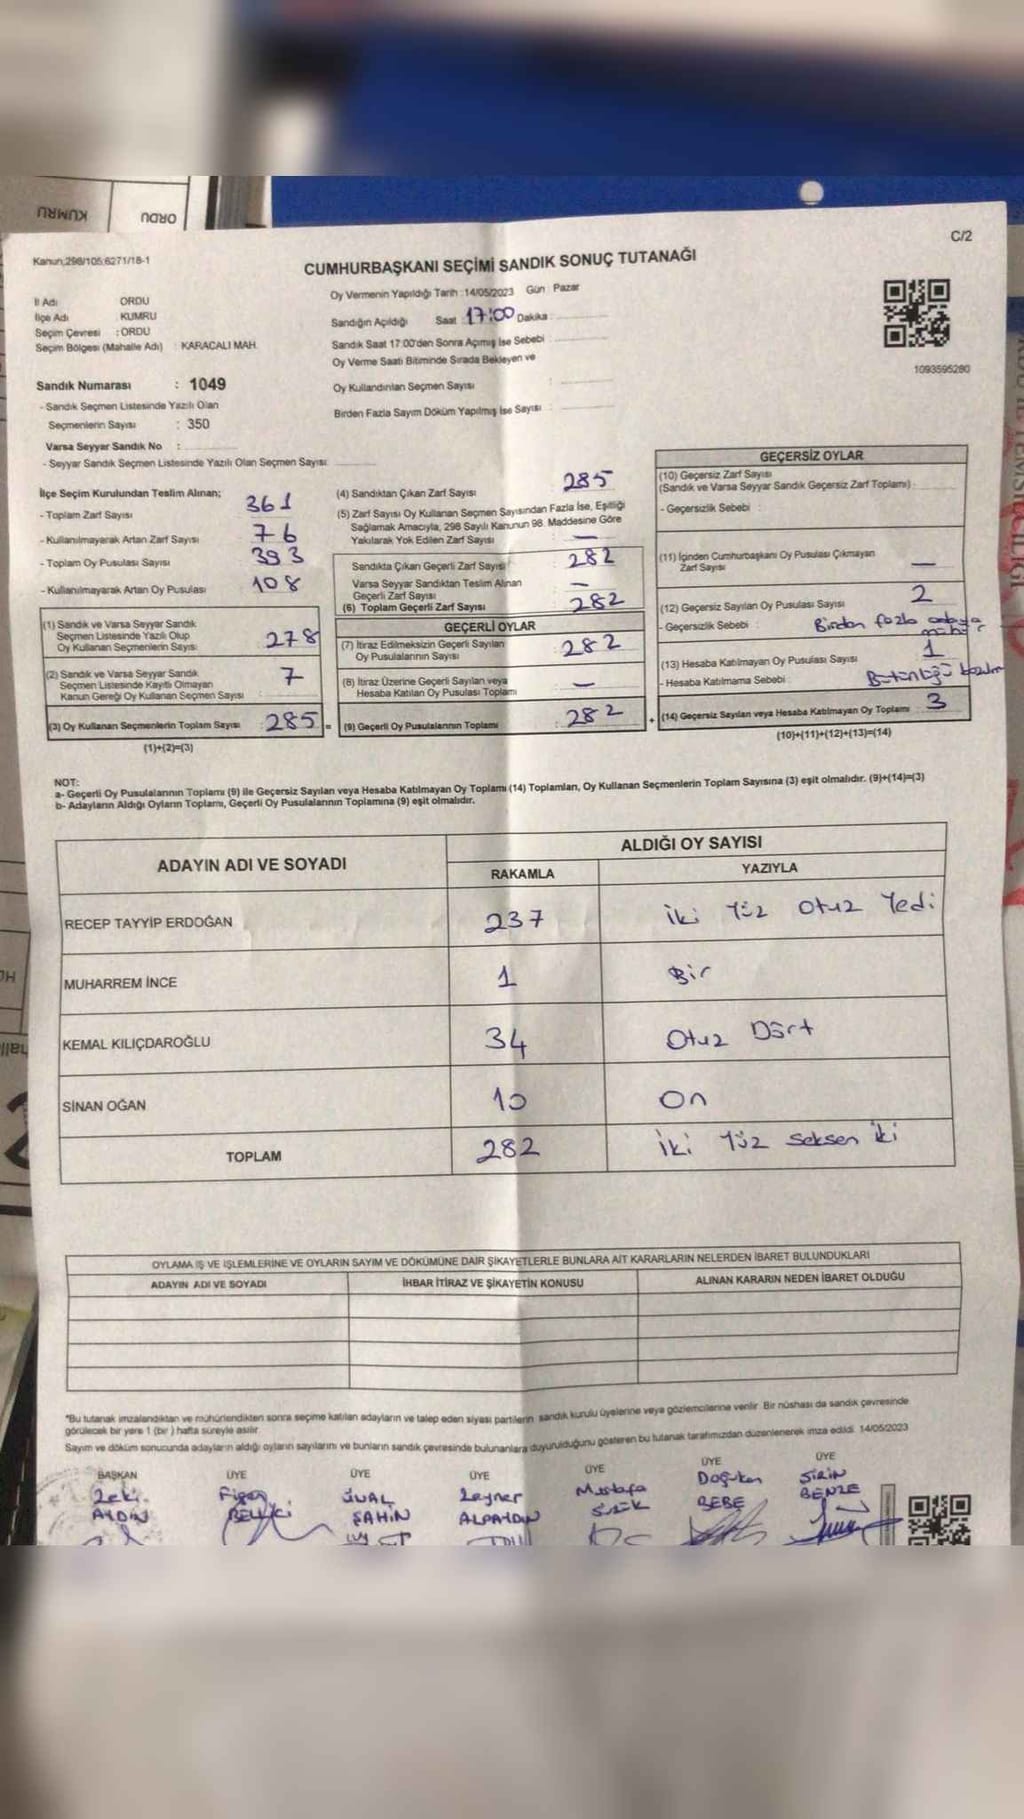 KUMRU
ORDU
C/2
Kanun;298/105;6271/18-1
CUMHURBAŞKANI SEÇİMİ SANDIK SONUÇ TUTANAĞI
Oy Vermenin Yapıldığı Tarih :14/05/2023 Gün : Pazar
İl Adı ORDU
İlçe Adı KUMRU
Seçim Çevresi : ORDU
Seçim Bölgesi (Mahalle Adı) : KARACALI MAH.
Sandığın Açıldığı Saat 17:00 Dakika :
Sandık Saat 17:00'den Sonra Açımış İse Sebebi :
Oy Verme Saati Bitiminde Sırada Bekleyen ve
Oy Kullandırılan Seçmen Sayısı :
Birden Fazla Sayım Döküm Yapılmış İse Sayısı :
1093595280
Sandık Numarası : 1049
- Sandık Seçmen Listesinde Yazılı Olan
Seçmenlerin Sayısı : 350
Varsa Seyyar Sandık No :
- Seyyar Sandık Seçmen Listesinde Yazılı Olan Seçmen Sayısı:
İlçe Seçim Kurulundan Teslim Alınan;
- Toplam Zarf Sayısı 361
- Kullanılmayarak Artan Zarf Sayısı 76
- Toplam Oy Pusulası Sayısı 393
- Kullanılmayarak Artan Oy Pusulası 108
(1) Sandık ve Varsa Seyyar Sandık
Seçmen Listesinde Yazılı Olup
Oy Kullanan Seçmenlerin Sayısı 278
(2) Sandık ve Varsa Seyyar Sandık
Seçmen Listesinde Kayıtlı Olmayan
Kanun Gereği Oy Kullanan Seçmen Sayısı 7
(3) Oy Kullanan Seçmenlerin Toplam Sayısı : 285 =
(1)+(2)=(3)
(4) Sandıktan Çıkan Zarf Sayısı 285
(5) Zarf Sayısı Oy Kullanan Seçmen Sayısından Fazla İse, Eşitliği
Sağlamak Amacıyla, 298 Sayılı Kanunun 98. Maddesine Göre
Yakılarak Yok Edilen Zarf Sayısı —
Sandıkta Çıkan Geçerli Zarf Sayısı 282
Varsa Seyyar Sandıktan Teslim Alınan
Geçerli Zarf Sayısı —
(6) Toplam Geçerli Zarf Sayısı 282
GEÇERLİ OYLAR
(7) İtiraz Edilmeksizin Geçerli Sayılan
Oy Pusulalarının Sayısı 282
(8) İtiraz Üzerine Geçerli Sayılan veya
Hesaba Katılan Oy Pusulası Toplamı —
(9) Geçerli Oy Pusulalarının Toplamı : 282 +
GEÇERSİZ OYLAR
(10) Geçersiz Zarf Sayısı
(Sandık ve Varsa Seyyar Sandık Geçersiz Zarf Toplamı) :
- Geçersizlik Sebebi :
(11) İçinden Cumhurbaşkanı Oy Pusulası Çıkmayan
Zarf Sayısı —
(12) Geçersiz Sayılan Oy Pusulası Sayısı 2
- Geçersizlik Sebebi : Birden fazla
(13) Hesaba Katılmayan Oy Pusulası Sayısı 1
- Hesaba Katılmama Sebebi : Bütünlüğü
(14) Geçersiz Sayılan veya Hesaba Katılmayan Oy Toplamı 3
(10)+(11)+(12)+(13)=(14)
NOT:
a- Geçerli Oy Pusulalarının Toplamı (9) ile Geçersiz Sayılan veya Hesaba Katılmayan Oy Toplamı (14) Toplamları, Oy Kullanan Seçmenlerin Toplam Sayısına (3) eşit olmalıdır. (9)+(14)=(3)
b- Adayların Aldığı Oyların Toplamı, Geçerli Oy Pusulalarının Toplamına (9) eşit olmalıdır.
ADAYIN ADI VE SOYADI
ALDIĞI OY SAYISI
RAKAMLA YAZIYLA
RECEP TAYYİP ERDOĞAN 237 iki Yüz Otuz Yedi
MUHARREM İNCE 1 Bir
KEMAL KILIÇDAROĞLU 34 Otuz Dört
SİNAN OĞAN 10 On
TOPLAM 282 iki Yüz Seksen iki
OYLAMA İŞ VE İŞLEMLERİNE VE OYLARIN SAYIM VE DÖKÜMÜNE DAİR ŞİKAYETLERLE BUNLARA AİT KARARLARIN NELERDEN İBARET BULUNDUKLARI
ADAYIN ADI VE SOYADI İHBAR İTİRAZ VE ŞİKAYETİN KONUSU ALINAN KARARIN NEDEN İBARET OLDUĞU
*Bu tutanak imzalandıktan ve mühürlendikten sonra seçime katılan adayların ve talep eden siyasi partilerin sandık kurulu üyelerine veya gözlemcilerine verilir. Bir nüshası da sandık çevresinde
görülecek bir yere 1 (bir) hafta süreyle asılır.
Sayım ve döküm sonucunda adayların aldığı oyların sayılarını ve bunların sandık çevresinde bulunanlara duyurulduğunu gösteren bu tutanak tarafımızdan düzenlenerek imza edildi. 14/05/2023
BAŞKAN ÜYE ÜYE ÜYE ÜYE ÜYE ÜYE
Zeki Figen ÜNAL Zeynep Mustafa Doğukan ŞİRİN
AYDIN ŞAHİN ALPAYDIN BEBE